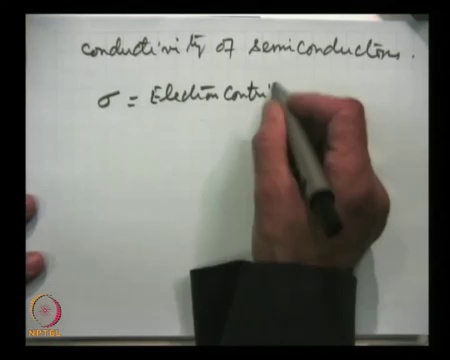 conductivity of semiconductors.
σ = Electron contri
NPTEL